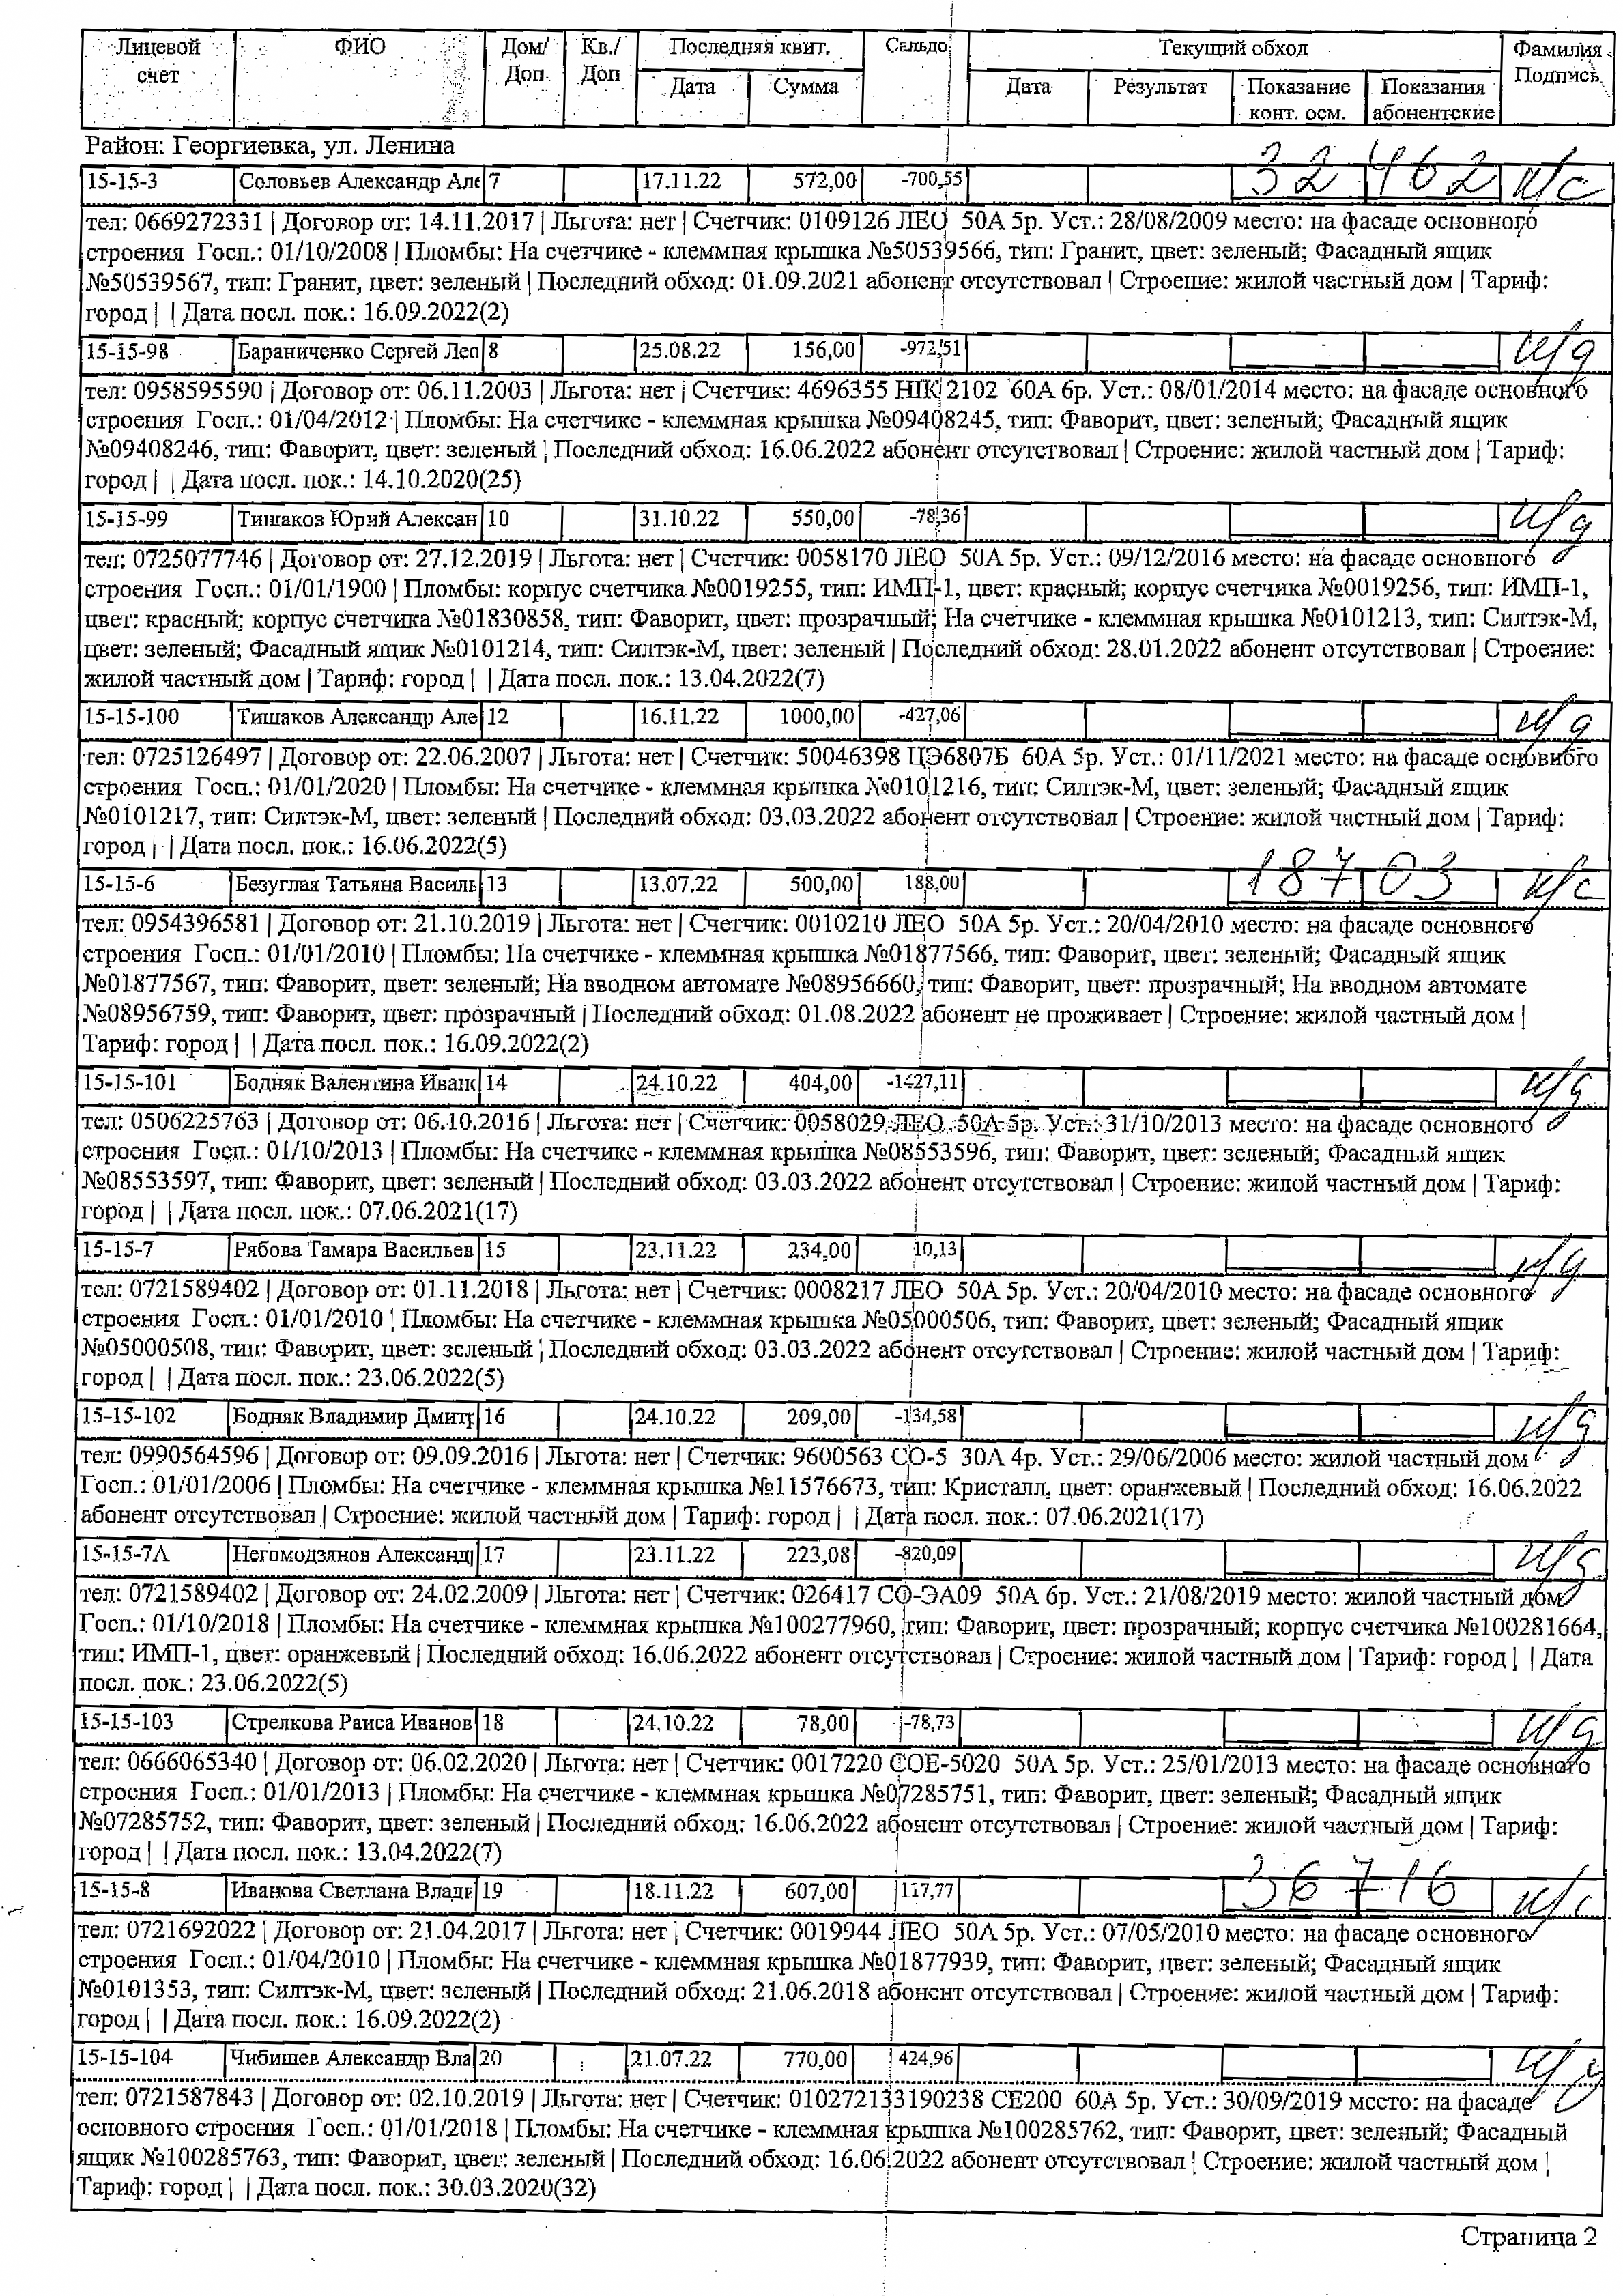 Лицевой счет | ФИО | Дом/ Доп | Кв./ Доп | Последняя квит. | Сальдо | Текущий обход | Фамилия Подпись
Дата | Сумма | Дата | Результат | Показание конт. осм. | Показания абонентские
Район: Георгиевка, ул. Ленина
15-15-3 Соловьев Александр Але 7 17.11.22 572,00 -700,55 32462 н/с
тел: 0669272331 | Договор от: 14.11.2017 | Льгота: нет | Счетчик: 0109126 ЛЕО 50А 5р. Уст.: 28/08/2009 место: на фасаде основного
строения Госп.: 01/10/2008 | Пломбы: На счетчике - клеммная крышка №50539566, тип: Гранит, цвет: зеленый; Фасадный ящик
№50539567, тип: Гранит, цвет: зеленый | Последний обход: 01.09.2021 абонент отсутствовал | Строение: жилой частный дом | Тариф:
город | | Дата посл. пок.: 16.09.2022(2)
15-15-98 Бараниченко Сергей Лео 8 25.08.22 156,00 -972,51 н/д
тел: 0958595590 | Договор от: 06.11.2003 | Льгота: нет | Счетчик: 4696355 НІК 2102 60А 6р. Уст.: 08/01/2014 место: на фасаде основного
строения Госп.: 01/04/2012 | Пломбы: На счетчике - клеммная крышка №09408245, тип: Фаворит, цвет: зеленый; Фасадный ящик
№09408246, тип: Фаворит, цвет: зеленый | Последний обход: 16.06.2022 абонент отсутствовал | Строение: жилой частный дом | Тариф:
город | | Дата посл. пок.: 14.10.2020(25)
15-15-99 Тишаков Юрий Алексан 10 31.10.22 550,00 -78,36 н/д
тел: 0725077746 | Договор от: 27.12.2019 | Льгота: нет | Счетчик: 0058170 ЛЕО 50А 5р. Уст.: 09/12/2016 место: на фасаде основного
строения Госп.: 01/01/1900 | Пломбы: корпус счетчика №0019255, тип: ИМП-1, цвет: красный; корпус счетчика №0019256, тип: ИМП-1,
цвет: красный; корпус счетчика №01830858, тип: Фаворит, цвет: прозрачный; На счетчике - клеммная крышка №0101213, тип: Силтэк-М,
цвет: зеленый; Фасадный ящик №0101214, тип: Силтэк-М, цвет: зеленый | Последний обход: 28.01.2022 абонент отсутствовал | Строение:
жилой частный дом | Тариф: город | | Дата посл. пок.: 13.04.2022(7)
15-15-100 Тишаков Александр Але 12 16.11.22 1000,00 -427,06 н/д
тел: 0725126497 | Договор от: 22.06.2007 | Льгота: нет | Счетчик: 50046398 ЦЭ6807Б 60А 5р. Уст.: 01/11/2021 место: на фасаде основного
строения Госп.: 01/01/2020 | Пломбы: На счетчике - клеммная крышка №0101216, тип: Силтэк-М, цвет: зеленый; Фасадный ящик
№0101217, тип: Силтэк-М, цвет: зеленый | Последний обход: 03.03.2022 абонент отсутствовал | Строение: жилой частный дом | Тариф:
город | | Дата посл. пок.: 16.06.2022(5)
15-15-6 Безуглая Татьяна Василь 13 13.07.22 500,00 188,00 18703 н/с
тел: 0954396581 | Договор от: 21.10.2019 | Льгота: нет | Счетчик: 0010210 ЛЕО 50А 5р. Уст.: 20/04/2010 место: на фасаде основного
строения Госп.: 01/01/2010 | Пломбы: На счетчике - клеммная крышка №01877566, тип: Фаворит, цвет: зеленый; Фасадный ящик
№01877567, тип: Фаворит, цвет: зеленый; На вводном автомате №08956660, тип: Фаворит, цвет: прозрачный; На вводном автомате
№08956759, тип: Фаворит, цвет: прозрачный | Последний обход: 01.08.2022 абонент не проживает | Строение: жилой частный дом |
Тариф: город | | Дата посл. пок.: 16.09.2022(2)
15-15-101 Бодняк Валентина Иванс 14 24.10.22 404,00 -1427,11 н/д
тел: 0506225763 | Договор от: 06.10.2016 | Льгота: нет | Счетчик: 0058029 ЛЕО 50А 5р. Уст.: 31/10/2013 место: на фасаде основного
строения Госп.: 01/10/2013 | Пломбы: На счетчике - клеммная крышка №08553596, тип: Фаворит, цвет: зеленый; Фасадный ящик
№08553597, тип: Фаворит, цвет: зеленый | Последний обход: 03.03.2022 абонент отсутствовал | Строение: жилой частный дом | Тариф:
город | | Дата посл. пок.: 07.06.2021(17)
15-15-7 Рябова Тамара Васильев 15 23.11.22 234,00 10,13 н/д
тел: 0721589402 | Договор от: 01.11.2018 | Льгота: нет | Счетчик: 0008217 ЛЕО 50А 5р. Уст.: 20/04/2010 место: на фасаде основного
строения Госп.: 01/01/2010 | Пломбы: На счетчике - клеммная крышка №05000506, тип: Фаворит, цвет: зеленый; Фасадный ящик
№05000508, тип: Фаворит, цвет: зеленый | Последний обход: 03.03.2022 абонент отсутствовал | Строение: жилой частный дом | Тариф:
город | | Дата посл. пок.: 23.06.2022(5)
15-15-102 Бодняк Владимир Дмитр 16 24.10.22 209,00 -134,58 н/д
тел: 0990564596 | Договор от: 09.09.2016 | Льгота: нет | Счетчик: 9600563 СО-5 30А 4р. Уст.: 29/06/2006 место: жилой частный дом
Госп.: 01/01/2006 | Пломбы: На счетчике - клеммная крышка №11576673, тип: Кристалл, цвет: оранжевый | Последний обход: 16.06.2022
абонент отсутствовал | Строение: жилой частный дом | Тариф: город | | Дата посл. пок.: 07.06.2021(17)
15-15-7А Негомодзянов Александр 17 23.11.22 223,08 -820,09 н/д
тел: 0721589402 | Договор от: 24.02.2009 | Льгота: нет | Счетчик: 026417 СО-ЭА09 50А 6р. Уст.: 21/08/2019 место: жилой частный дом
Госп.: 01/10/2018 | Пломбы: На счетчике - клеммная крышка №100277960, тип: Фаворит, цвет: прозрачный; корпус счетчика №100281664,
тип: ИМП-1, цвет: оранжевый | Последний обход: 16.06.2022 абонент отсутствовал | Строение: жилой частный дом | Тариф: город | | Дата
посл. пок.: 23.06.2022(5)
15-15-103 Стрелкова Раиса Иванов 18 24.10.22 78,00 -78,73 н/д
тел: 0666065340 | Договор от: 06.02.2020 | Льгота: нет | Счетчик: 0017220 СОЕ-5020 50А 5р. Уст.: 25/01/2013 место: на фасаде основного
строения Госп.: 01/01/2013 | Пломбы: На счетчике - клеммная крышка №07285751, тип: Фаворит, цвет: зеленый; Фасадный ящик
№07285752, тип: Фаворит, цвет: зеленый | Последний обход: 16.06.2022 абонент отсутствовал | Строение: жилой частный дом | Тариф:
город | | Дата посл. пок.: 13.04.2022(7)
15-15-8 Иванова Светлана Влади 19 18.11.22 607,00 117,77 36716 н/с
тел: 0721692022 | Договор от: 21.04.2017 | Льгота: нет | Счетчик: 0019944 ЛЕО 50А 5р. Уст.: 07/05/2010 место: на фасаде основного
строения Госп.: 01/04/2010 | Пломбы: На счетчике - клеммная крышка №01877939, тип: Фаворит, цвет: зеленый; Фасадный ящик
№0101353, тип: Силтэк-М, цвет: зеленый | Последний обход: 21.06.2018 абонент отсутствовал | Строение: жилой частный дом | Тариф:
город | | Дата посл. пок.: 16.09.2022(2)
15-15-104 Чибишев Александр Вла 20 21.07.22 770,00 424,96 н/д
тел: 0721587843 | Договор от: 02.10.2019 | Льгота: нет | Счетчик: 010272133190238 СЕ200 60А 5р. Уст.: 30/09/2019 место: на фасаде
основного строения Госп.: 01/01/2018 | Пломбы: На счетчике - клеммная крышка №100285762, тип: Фаворит, цвет: зеленый; Фасадный
ящик №100285763, тип: Фаворит, цвет: зеленый | Последний обход: 16.06.2022 абонент отсутствовал | Строение: жилой частный дом |
Тариф: город | | Дата посл. пок.: 30.03.2020(32)
Страница 2